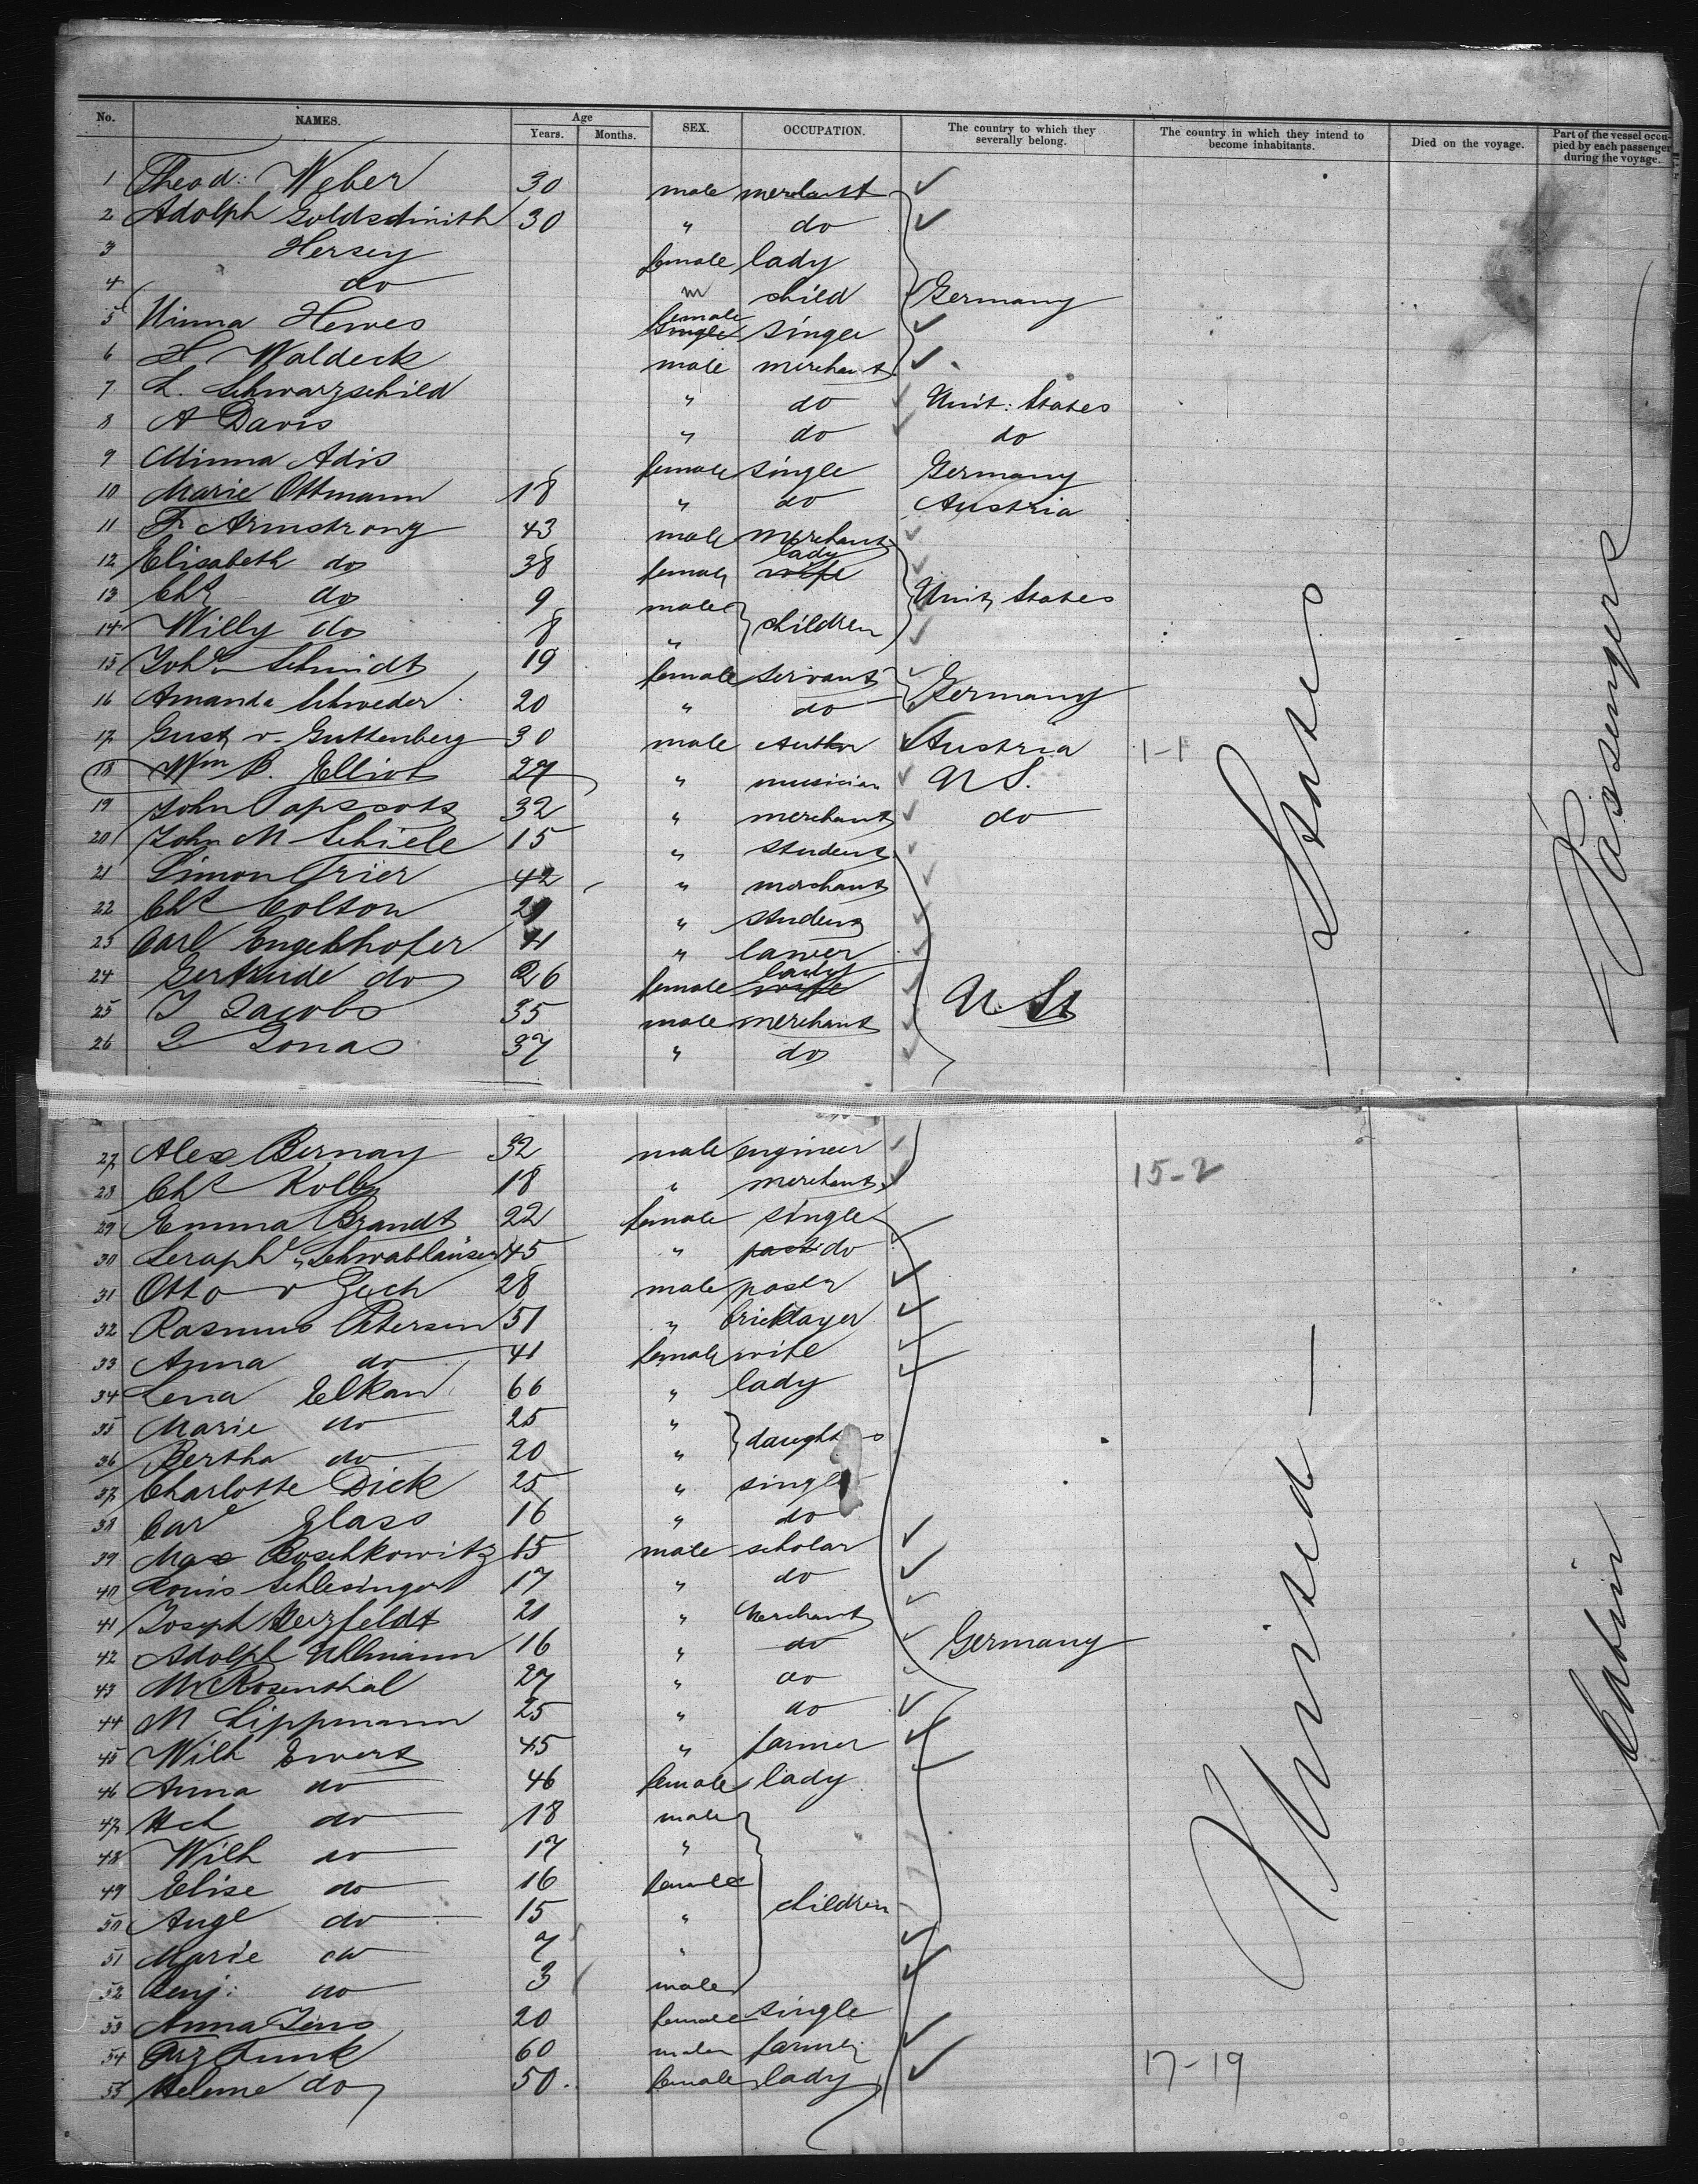 No. NAMES. Age Years. Months. SEX. OCCUPATION. The country to which they severally belong. The country in which they intend to become inhabitants. Died on the voyage. Part of the vessel occupied by each passenger during the voyage.
1 Theod: Weber 30 male merchant
2 Adolph Goldschmith 30 " do
3 Hersey female lady
4 do m child Germany
5 Minna Hewes female single singer
6 H Waldeck male merchant
7 L. Schwarzschild " do Unit: States
8 A Davis " do do
9 Minna Adis female single Germany
10 Marie Ottmann 18 " do Austria
11 Fr Armstrong 43 male merchant
12 Elisabeth do 38 female lady wife
13 Chs do 9 male Unit States
14 Willy do 8 " children
15 Joh Schmidt 19 female servant
16 Amanda Schweder 20 " do Germany
17 Gust v. Guttenberg 30 male Author Austria 1-1
18 Wm B. Elliot 27 " musician U S.
19 John Papscots 32 " merchant do
20 John M Schiele 15 " student
21 Simon Trier 42 " merchant
22 Chs Colton 29 " student
23 Carl Engelhofer 41 " lawer
24 Gertrude do 26 female lady wife
25 J Jacobs 35 male merchant U. St
26 J Jonas 37 " do
27 Alex Bernay 32 male engineer
28 Chs Kolby 18 " merchant 15-2
29 Emma Brandt 22 female single
30 Seraph Schwabhäuser 45 " do
31 Otto v Zech 28 male pastr
32 Rasmus Petersen 51 " bricklayer
33 Anna do 41 female wife
34 Lena Elkan 66 " lady
35 Marie do 25 "
36 Bertha do 20 " daught s
37 Charlotte Dick 25 " single
38 Car Glass 16 " do
39 Max Boschkowitz 15 male scholar
40 Louis Schlesinger 17 " do
41 Joseph Herzfeldt 21 " Merchant
42 Adolph Ullmann 16 " do Germany
43 M Rosenthal 27 " do
44 M Lippmann 25 " do
45 Wilh Ewert 45 " farmer
46 Anna do 46 female lady
47 Hch do 18 male
48 Wilh do 17 "
49 Elise do 16 female
50 Aug do 15 " children
51 Marie do 7 "
52 Benj: do 3 male
53 Anna Jens 20 female single
54 Funk 60 male farmer
55 Helene do 50. female lady 17-19
United States
Cabin Passengers